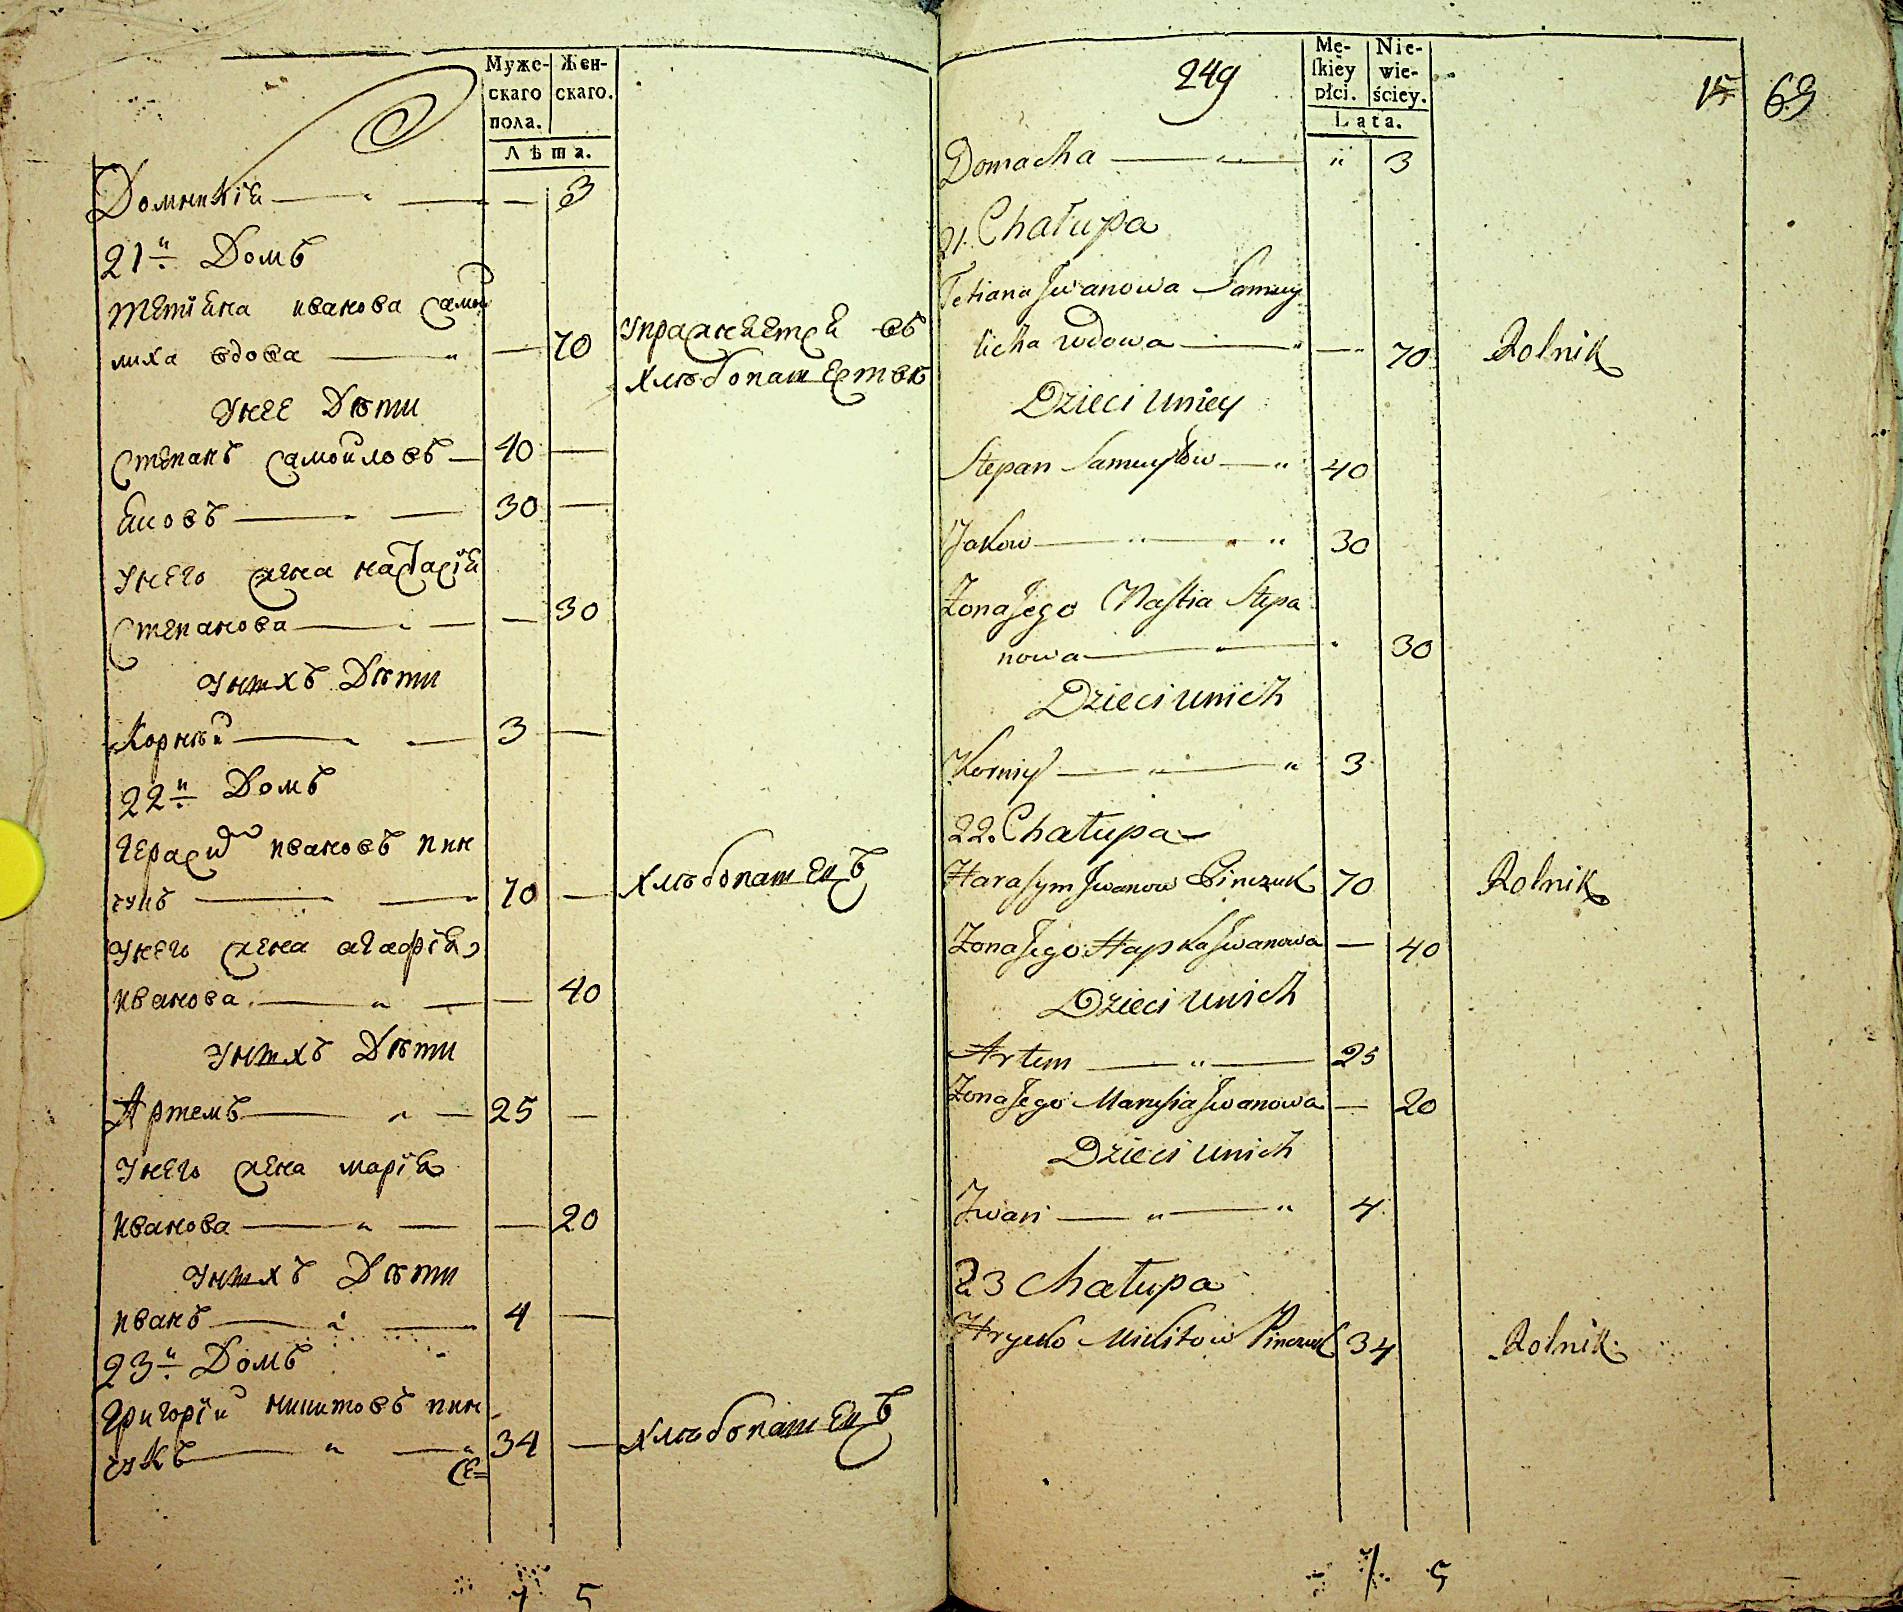 Муже-
скаго
пола.
Жен-
скаго.
Лѣта.
Домникія — " — — 3
21й Домъ
Тетіяна иванова Самой
лиха вдова — " — 70
упражняется въ
хлѣбопашествѣ
У нее Дѣти
Степанъ Самойловъ — 40 —
Яковъ — " — 30 —
У него жена настасія
Степанова — " — — 30
У нихъ Дѣти
Корнѣй — " — 3 —
22й Домъ
Герасим ивановъ пин
чукъ — — 70 — хлѣбопашецъ
У него жена агафія
иванова — " — — 40
У нихъ Дѣти
Артемъ — " — 25 —
У него жена марія
иванова — " — — 20
У нихъ Дѣти
иванъ — " — 4 —
23й Домъ
Григорій никитовъ пин
чукъ — " — " 34 — хлѣбопашецъ
Се=
7 5
249
Mę-
skiey
płci.
Nie-
wie-
ściey.
Lata.
15 69
Domacha — " — " 3
21. Chałupa
Tetiana Jwanowa Samuy
licha wdowa — " — " 70 Rolnik
Dzieci u niey
Stepan Samuyłow — " 40
Jakow — " — " 30
Żona Jego Nastia Stepa
nowa — — " 30
Dzieci u nich
Korniy — " — " 3
22. Chałupa
Harasym Jwanow Pinczuk 70 Rolnik
Żona Jego Hapka Jwanowa — 40
Dzieci u nich
Artem — " — 25
Żona Jego Marusia Jwanowa — 20
Dzieci u nich
Jwan — " — " 4
23 Chałupa
Hryćko Mikitow Pinczuk 34 Rolnik
7 5